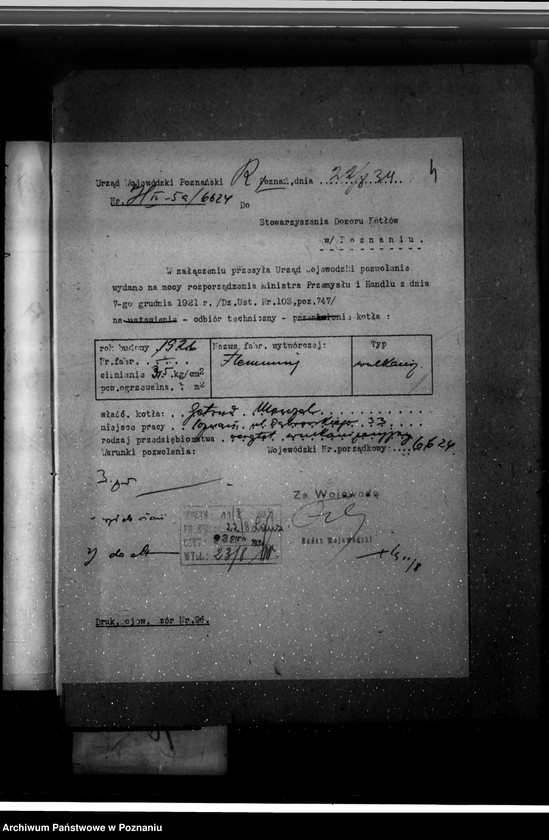 Urząd Wojewódzki Poznański Poznań, dnia 22/8 34 4
Nr. H II-5a/6624
Do
Stowarzyszenia Dozoru Kotłów
w/Poznaniu.
W załączeniu przesyła Urząd Wojewódzki pozwolenie
wydane na mocy rozporządzenia Ministra Przemysłu i Handlu z dnia
7-go grudnia 1921 r. /Dz.Ust. Nr.103,poz.747/
na ustawienie - odbiór techniczny - przenkolenie kotła :
rok budowy 1926
Nr.fabr.
ciśnienie 3,5 kg/cm2
pow.ogrzewalna m2
Nazwa fabr. wytwórczej:
Flemming
Typ
wulkaniz.
właśc. kotła:
miejsce pracy Poznań ul. Dąbrowskiego 33
rodzaj przedsiębiorstwa warszt. wulkanizacyjny
Warunki pozwolenia: Wojewódzki Nr.porządkowy: 6624
Za Wojewodę
22/8
23/8
Radca Wojewódzki
Druk. ojow. zór Nr.96.
Archiwum Państwowe w Poznaniu